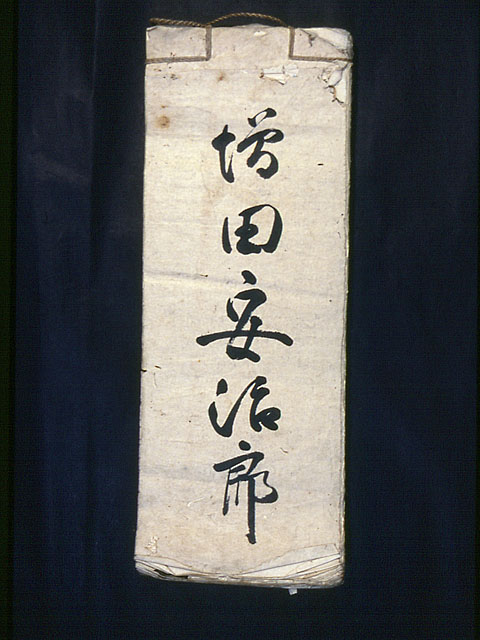 増田安治郎